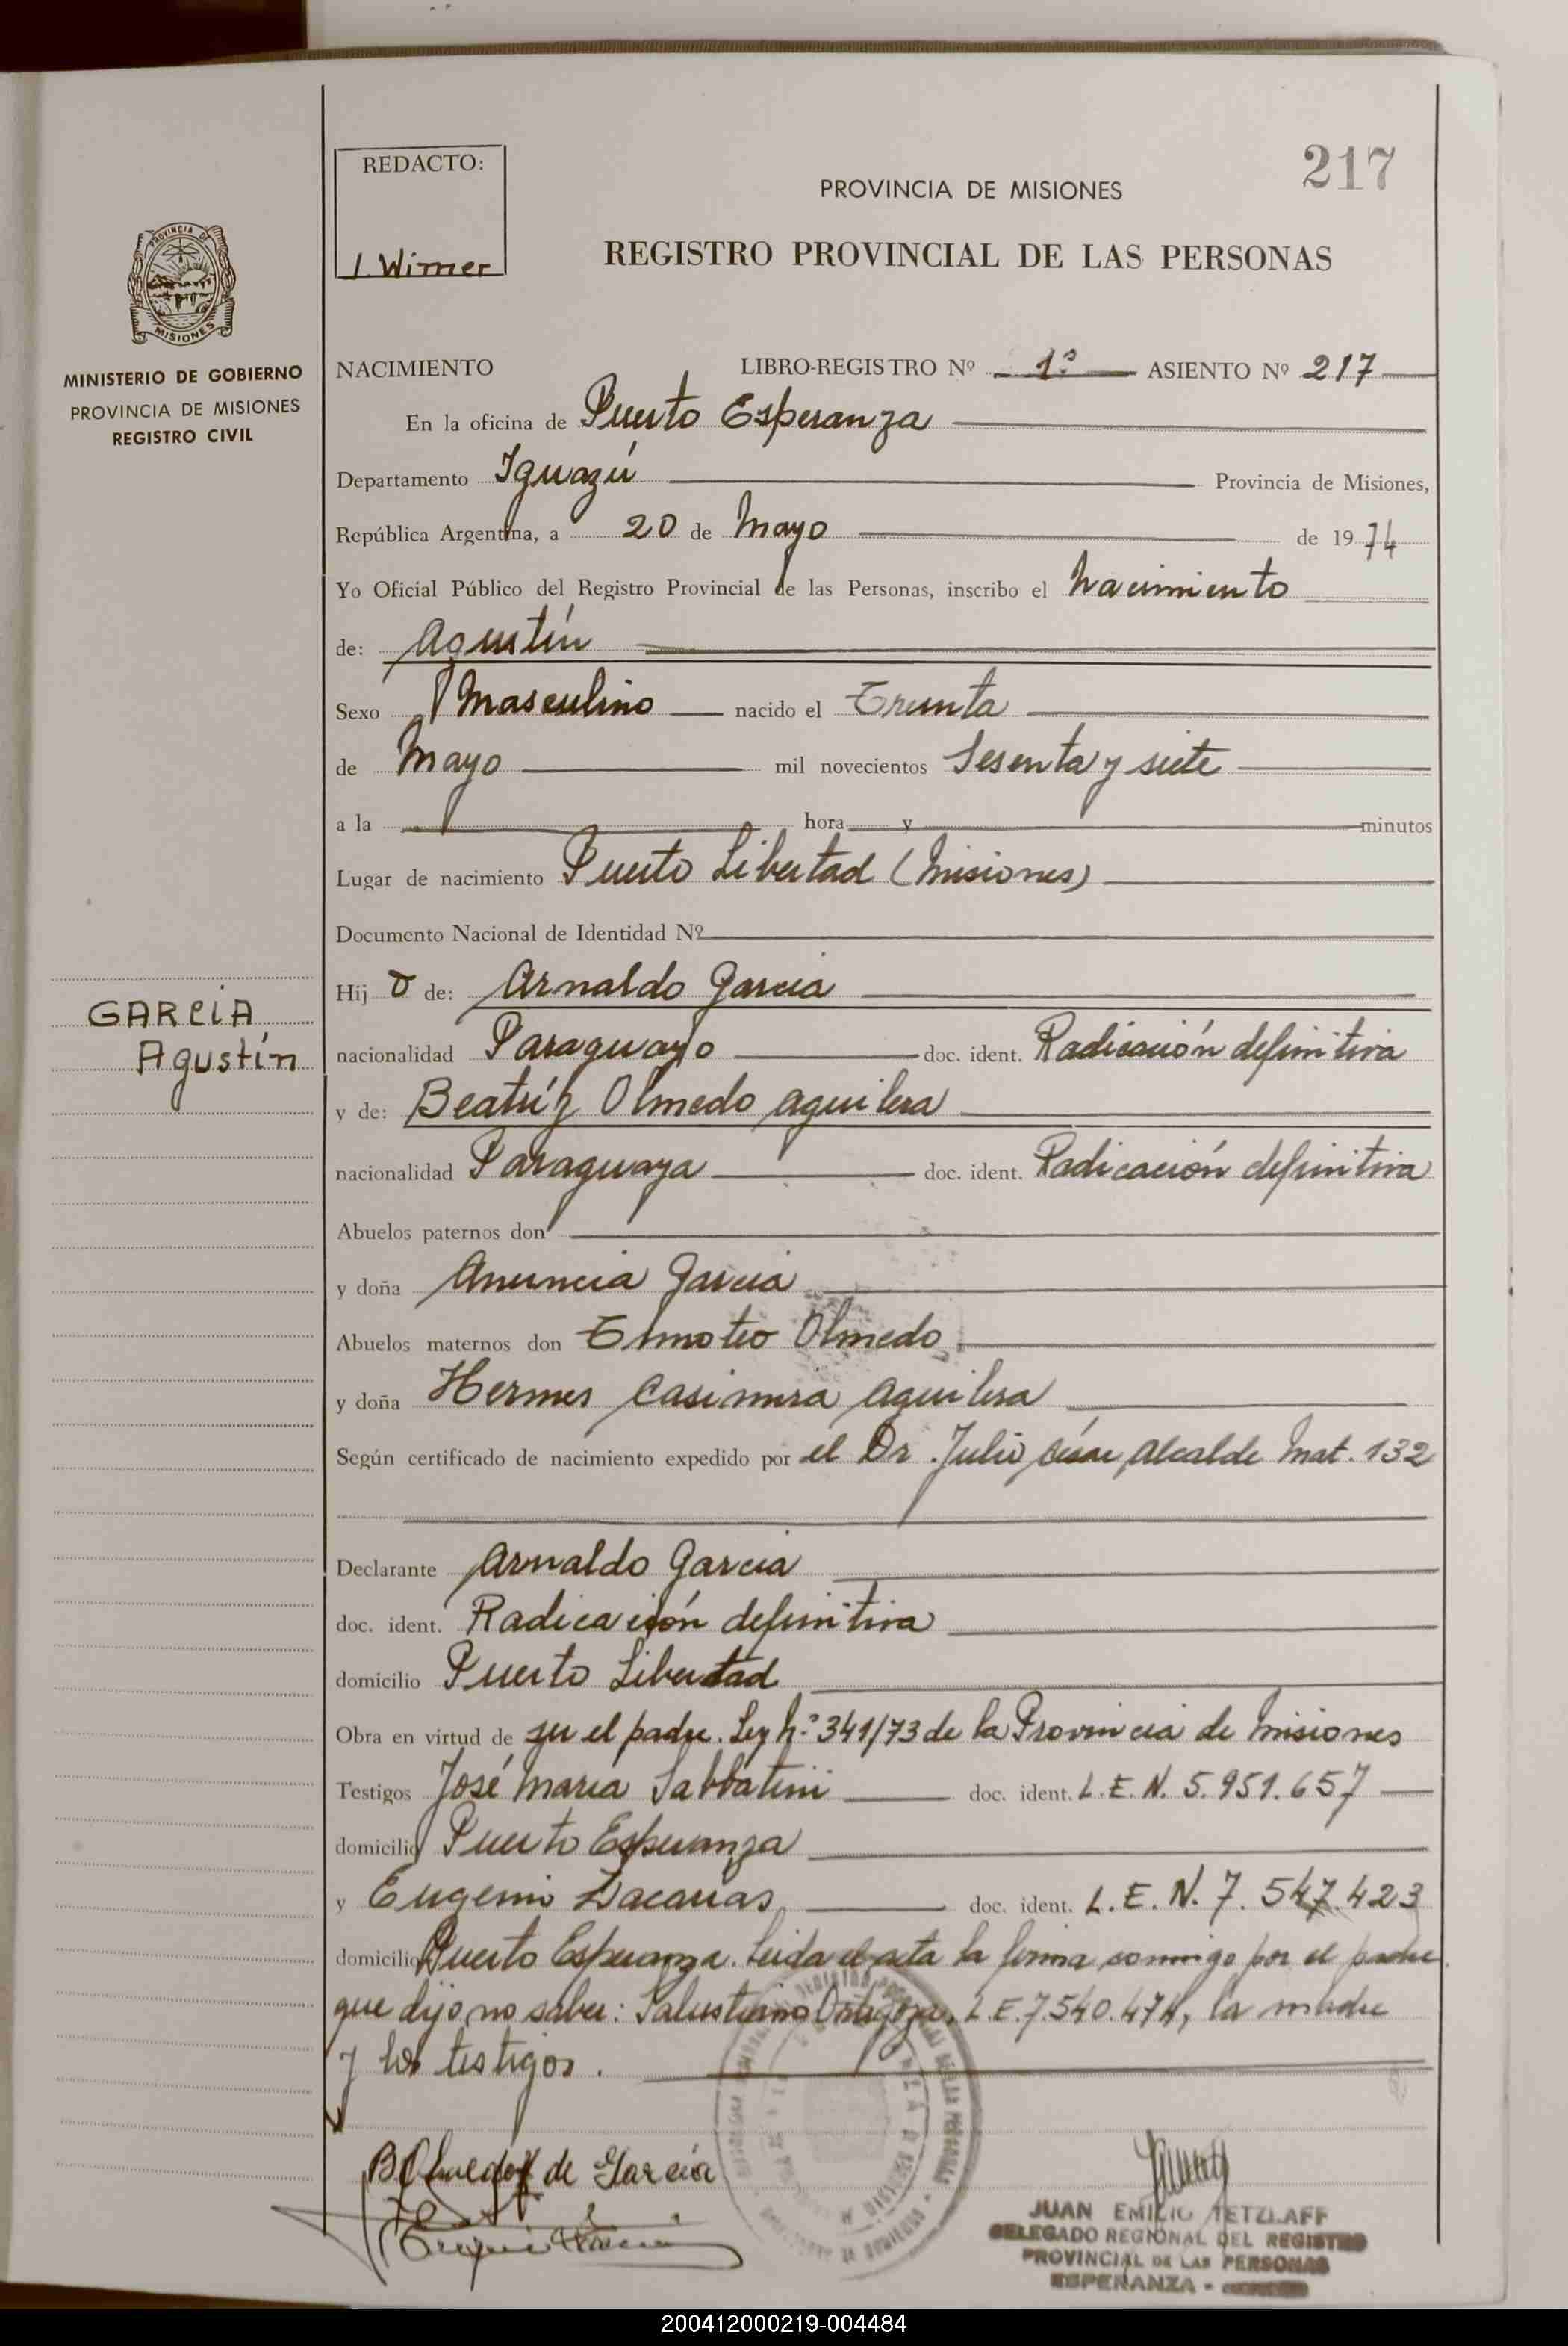 217
REDACTO:
J. Wimer
PROVINCIA DE MISIONES
REGISTRO PROVINCIAL DE LAS PERSONAS
PROVINCIA DE
MISIONES
MINISTERIO DE GOBIERNO
PROVINCIA DE MISIONES
REGISTRO CIVIL
NACIMIENTO LIBRO-REGISTRO Nº 1º ASIENTO Nº 217
En la oficina de Puerto Esperanza
Departamento Iguazú Provincia de Misiones,
República Argentina, a 20 de Mayo de 1974
Yo Oficial Público del Registro Provincial de las Personas, inscribo el Nacimiento
de: Agustín
Sexo Masculino nacido el Treinta
de Mayo mil novecientos Sesenta y siete
a la hora y minutos
Lugar de nacimiento Puerto Libertad (Misiones)
Documento Nacional de Identidad Nº
Hij o de: Arnaldo Garcia
GARCIA
Agustín
nacionalidad Paraguayo doc. ident. Radicación definitiva
y de: Beatríz Olmedo Aguilera
nacionalidad Paraguaya doc. ident. Radicación definitiva
Abuelos paternos don
y doña Anuncia Garcia
Abuelos maternos don Timoteo Olmedo
y doña Hermes Casimira Aguilera
Según certificado de nacimiento expedido por el Dr. Julio César Alcalde Mat. 132
Declarante Arnaldo Garcia
doc. ident. Radicación definitiva
domicilio Puerto Libertad
Obra en virtud de ser el padre. Ley Nº 341/73 de la Provincia de Misiones
Testigos José María Sabbatini doc. ident. L.E.N. 5.951.657
domicilio Puerto Esperanza
y Eugenio Zacarias doc. ident. L.E.N. 7.547.423
domicilio Puerto Esperanza. Leida el acta la firma conmigo por el padre
que dijo no saber: Salustiano Ortigoza, L.E. 7.540.474, la madre
y los testigos.
B Olmedo de García
JUAN EMILIO TETZLAFF
DELEGADO REGIONAL DEL REGISTRO
PROVINCIAL DE LAS PERSONAS
ESPERANZA -
200412000219-004484